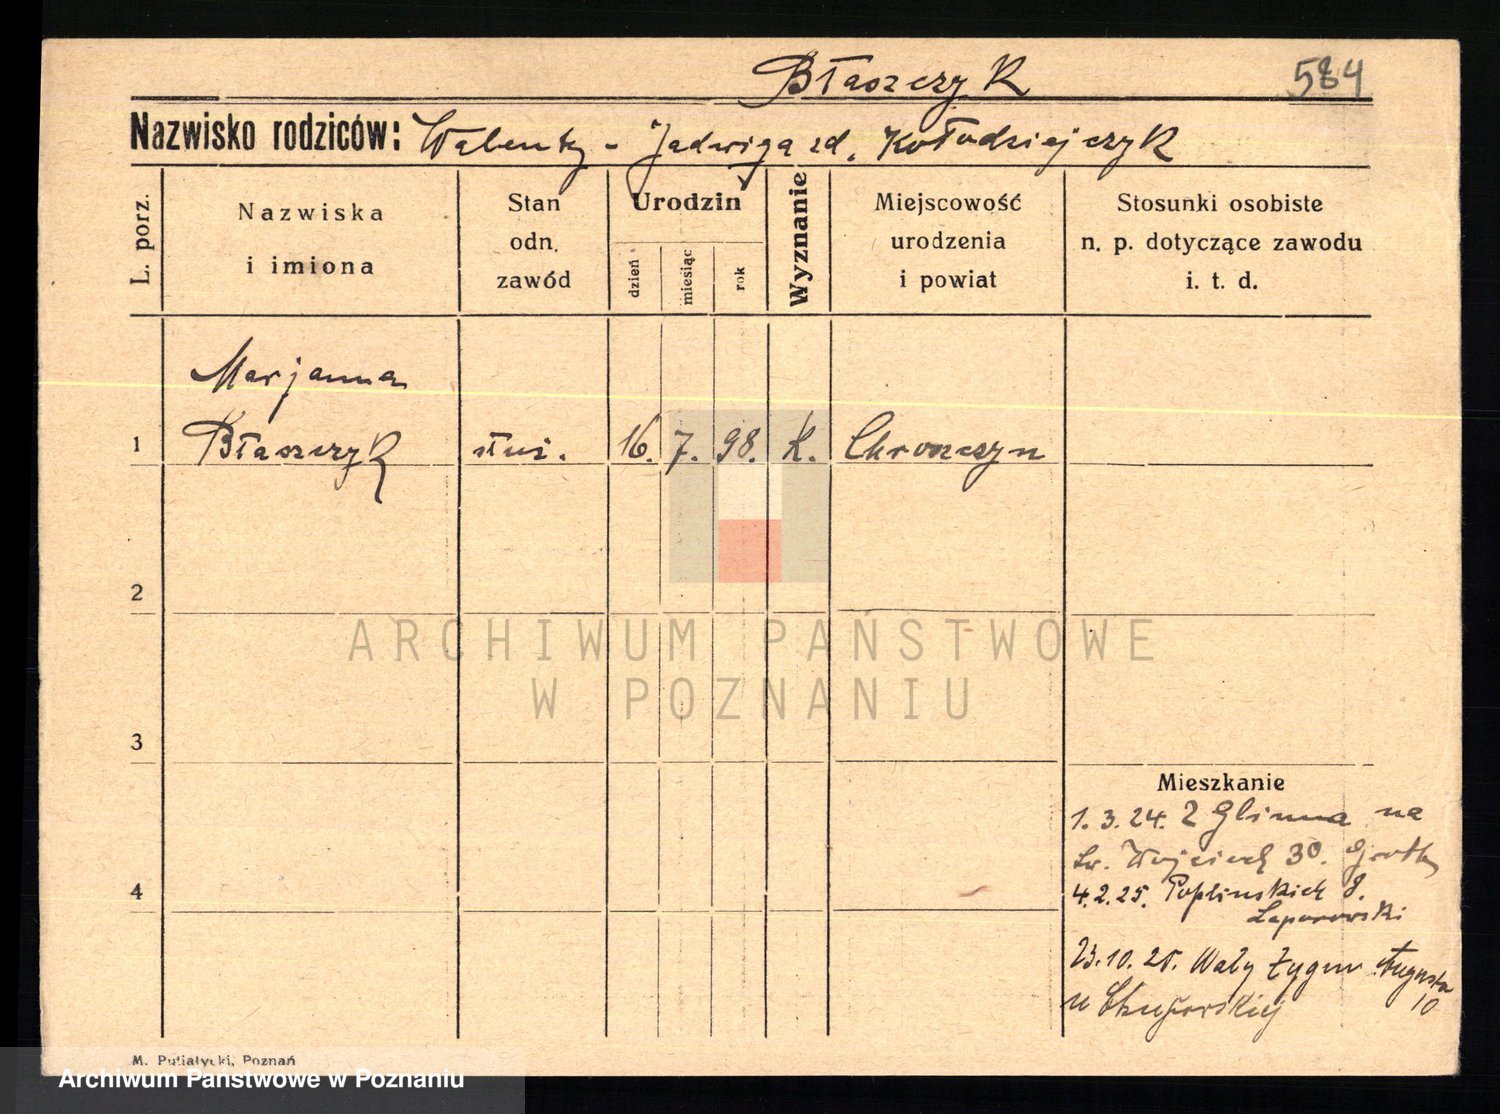 Błaszczyk 584
Nazwisko rodziców: Walenty - Jadwiga zd. Kołodziejczyk
L. porz.
Nazwiska
i imiona
Stan
odn.
zawód
Urodzin
dzień
miesiąc
rok
Wyznanie
Miejscowość
urodzenia
i powiat
Stosunki osobiste
n. p. dotyczące zawodu
i. t. d.
Marjanna
1 Błaszczyk służ. 16. 7. 98. K. Chroszczyn
2
ARCHIWUM PAŃSTWOWE
W POZNANIU
3
Mieszkanie
1. 3. 24. Z Glinna na
Św. Wojciech 30.
4
4.2.25. Poplinskich 8.
Laporowski
23.10.25. Wały Zygm Augusta
10
u
M. Putiatycki, Poznań
Archiwum Państwowe w Poznaniu